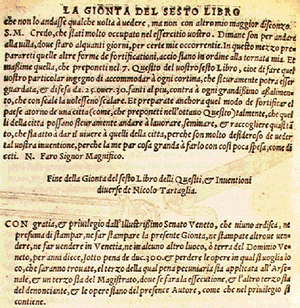 LA GIONTA DEL SESTO LIBRO
che non lo andasse qualche volta à vedere, ma non con altro mio maggior disconzo.
S.M. Credo, che stati molto occupato nel essercitio vostro. Dimane son per andar
alla villa, doue staro alquanti giorni, per certe mie occorrentie. In questo mezzo pre
parareti quelle altre forme de fortificationi, acciò siano in ordine alla tornata mia. Et
ma ßime quella, che preponeti nel 7. Quesito del vostro sesto Libro, cioe di far che quel
vostro particolar ingegno di accommodar à ogni cortina, che sicuramente potra esser
guardata, e difesa da 25. ouer .30. fanti al piu, contra à ogni grandißimo assalimen-
to, che con scale la volessero scalare. Et preparate anchora quel modo di fortificar el
paese atorno de una citta (come, che preponeti nell' ottauo Quesito) talmente, che quel
li della citta possano sicuramente andare à lavorare, seminare, e raccogliere quasi ta
to, che sia atto à dar il viuere à quelli della citta, perche son molto desideroso de veder
tal vostra inuentione, perche la me par cosa granda à farlo con cosi poca spesa, come di
ceti. N. Faro Signor Magnifico.
Fine della Gionta del sesto Libro delli Quesiti, & Inuentioni
diuerse de Nicolo Tartaglia.
CON gratia, & priuilegio dall' Illustrißimo Senato Veneto, che niuno ardisca, ne
presuma di stampar, ne far stampare la presente Gionta, ne stampate altroue ven-
dere, ne far vendere in Venetia, ne in alcuno altro luoco, ò terra del Dominio Ve-
neto, per anni diece, sotto pena de duc. 300. & perdere le opere in qual si voglia lo
co, che saranno trouate, el terzo della qual pena pecuniaria sia applicata all' Arse-
nale, & un terzo sia del Magistrato, doue se fara la essecutione, & l' altro terzo sia
del denontiante, & le opere siano del presente Autore, come che nel priuilegio si
contiene.